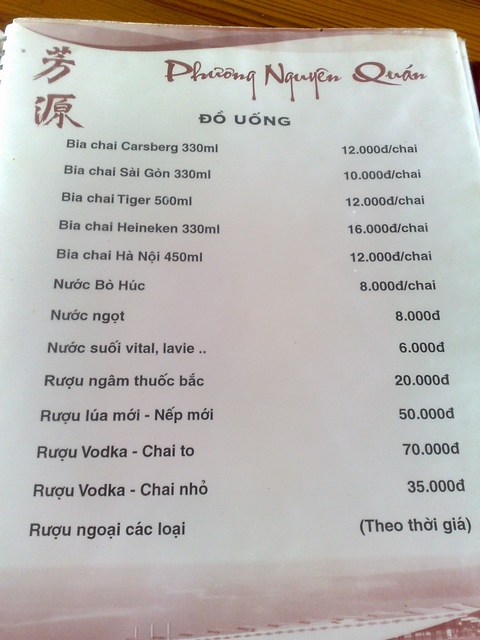 芳源
Phương Nguyên Quán
ĐỒ UỐNG
Bia chai Carsberg 330ml 12.000đ/chai
Bia chai Sài Gòn 330ml 10.000đ/chai
Bia chai Tiger 500ml 12.000đ/chai
Bia chai Heineken 330ml 16.000đ/chai
Bia chai Hà Nội 450ml 12.000đ/chai
Nước Bò Húc 8.000đ/chai
Nước ngọt 8.000đ
Nước suối vital, lavie .. 6.000đ
Rượu ngâm thuốc bắc 20.000đ
Rượu lúa mới - Nếp mới 50.000đ
Rượu Vodka - Chai to 70.000đ
Rượu Vodka - Chai nhỏ 35.000đ
Rượu ngoại các loại (Theo thời giá)